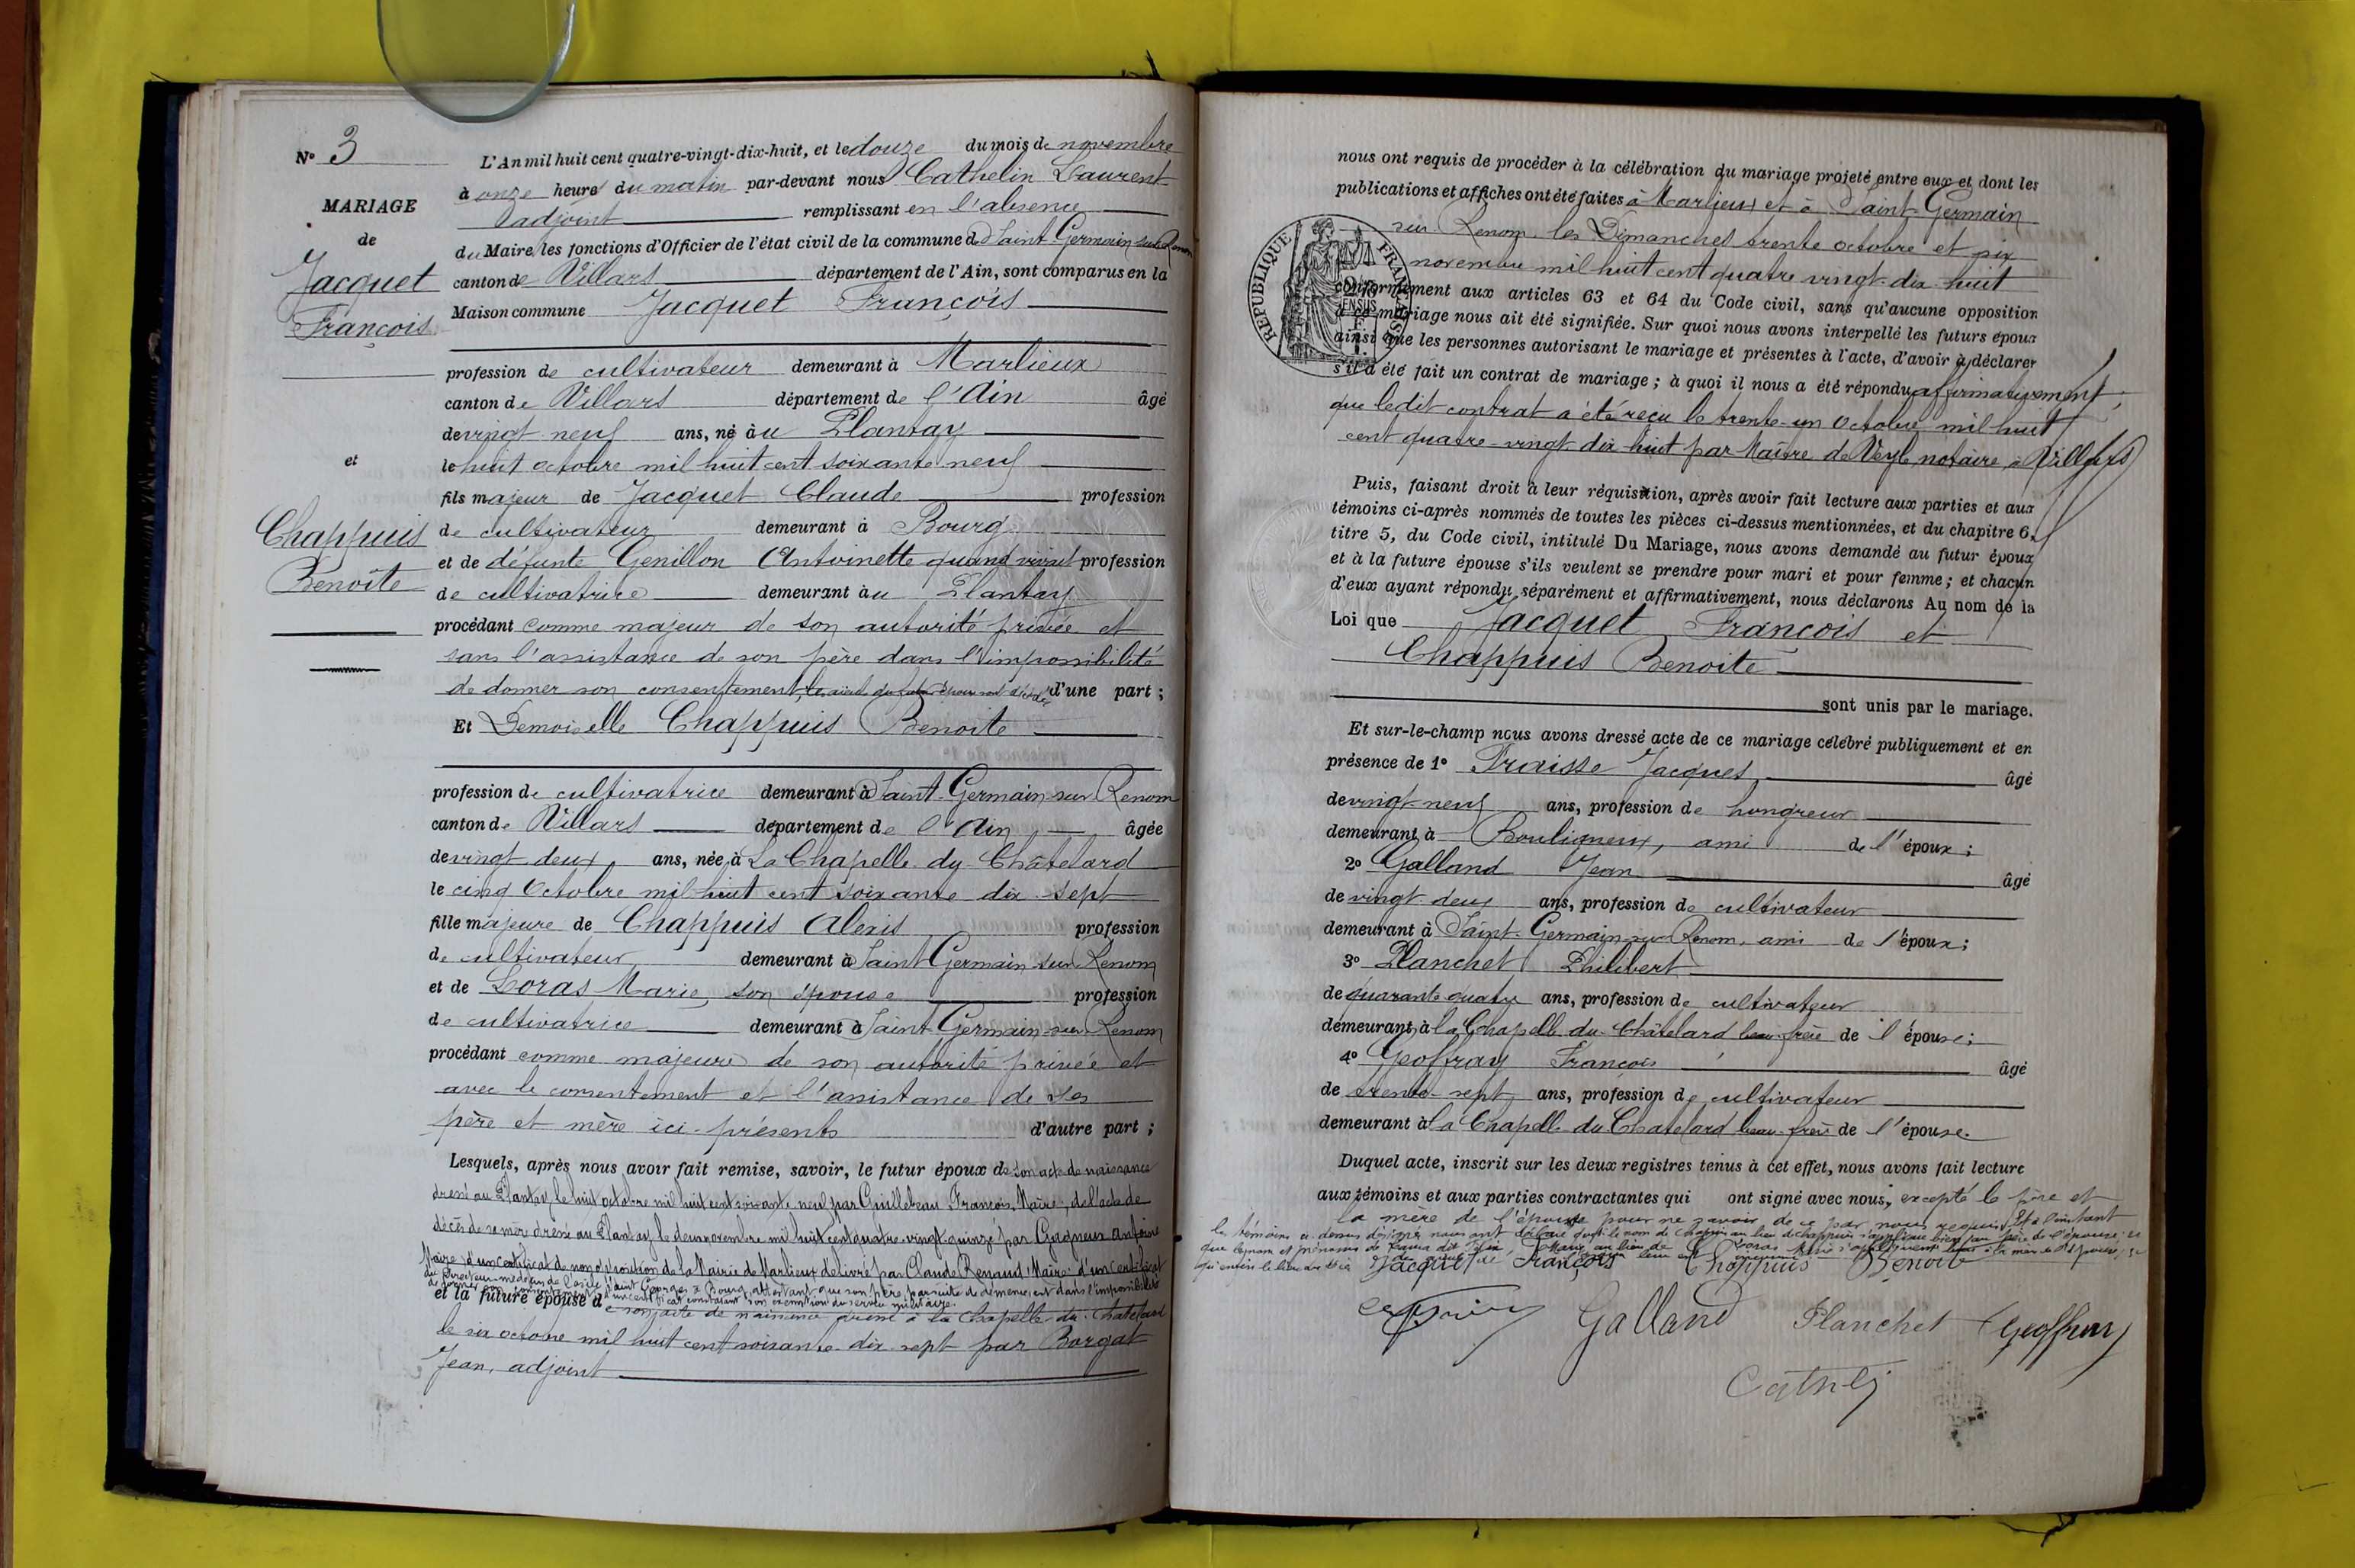 N° 3
MARIAGE
de
Jacquet
François
et
Chappuis
Benoite
L'An mil huit cent quatre-vingt-dix-huit, et le douze du mois de novembre
à onze heures du matin par-devant nous Cathelin Laurent
adjoint remplissant en l'absence
du Maire, les fonctions d'Officier de l'état civil de la commune de Saint Germain sur Renom
canton de Villars département de l'Ain, sont comparus en la
Maison commune Jacquet François
profession de cultivateur demeurant à Marlieux
canton de Villars département de l'Ain âgé
de vingt neuf ans, né àu Plantay
le huit octobre mil huit cent soixante neuf
fils majeur de Jacquet Claude profession
de cultivateur demeurant à Bourg
et de défunte Genillon Antoinette quand vivait profession
de cultivatrice demeurant àu Plantay
procédant comme majeur de son autorité privée et
sans l'assistance de son père dans l'impossibilité
de donner son consentement, d'une part ;
Et Demoiselle Chappuis Benoite
profession de cultivatrice demeurant à Saint-Germain-sur Renom
canton de Villars département de l'Ain âgée
de vingt deux ans, née à La Chapelle du Châtelard
le cinq Octobre mil huit cent soixante dix-sept
fille majeure de Chappuis Alexis profession
de cultivateur demeurant à Saint Germain-sur Renom
et de Loras Marie, son épouse profession
de cultivatrice demeurant à Saint-Germain-sur Renom
procédant comme majeure de son autorité privée et
avec le consentement et l'assistance de ses
père et mère ici-présents d'autre part ;
Lesquels, après nous avoir fait remise, savoir, le futur époux de son acte de naissance
dressé au Plantay le huit octobre mil huit cent soixante neuf par Guillebeau François, Maire, de l'acte de
décès de sa mère dressé au Plantay le deux novembre mil huit cent quatre-vingt-quinze par Gagneux Antoine
Maire d'un certificat de non opposition de la Mairie de Marlieux délivré par Claude Renaud Maire, d'un certificat
du Directeur-médecin de l'asile Saint Georges à Bourg attestant que son père par suite de démence, est dans l'impossibilité
de donner son consentement d'un certificat constatant son exemption du service militaire.
et la future épouse de son acte de naissance dressé à la Chapelle du Chatelard
le six octobre mil huit cent soixante-dix-sept par Borgat
Jean, adjoint
nous ont requis de procéder à la célébration du mariage projeté entre eux et dont les
publications et affiches ont été faites à Marlieux et à Saint-Germain
sur Renom les Dimanches trente octobre et six
novembre mil huit cent quatre vingt-dix-huit
RÉPUBLIQUE FRANÇAISE
conformément aux articles 63 et 64 du Code civil, sans qu'aucune opposition
à ce mariage nous ait été signifiée. Sur quoi nous avons interpellé les futurs époux
ainsi que les personnes autorisant le mariage et présentes à l'acte, d'avoir à déclarer
s'il a été fait un contrat de mariage ; à quoi il nous a été répondu affirmativement,
que ledit contrat a été reçu le trente-un Octobre mil huit
cent quatre-vingt dix-huit par Maître de Veyle notaire à Villars
Puis, faisant droit à leur réquisition, après avoir fait lecture aux parties et aux
témoins ci-après nommés de toutes les pièces ci-dessus mentionnées, et du chapitre 6,
titre 5, du Code civil, intitulé Du Mariage, nous avons demandé au futur époux
et à la future épouse s'ils veulent se prendre pour mari et pour femme ; et chacun
d'eux ayant répondu séparément et affirmativement, nous déclarons Au nom de la
Loi que Jacquet François et
Chappuis Benoite
sont unis par le mariage.
Et sur-le-champ nous avons dressé acte de ce mariage célébré publiquement et en
présence de 1° Fraisse Jacques âgé
de vingt-neuf ans, profession de hongreur
demeurant à Bouligneux, ami de l'époux ;
2° Galland Jean âgé
de vingt-deux ans, profession de cultivateur
demeurant à Saint-Germain-sur Renom, ami de l'époux ;
3° Planchet Philibert
de quarante quatre ans, profession de cultivateur
demeurant à la Chapelle du Châtelard beau-frère de l'épouse ;
4° Geoffray François âgé
de trente-sept ans, profession de cultivateur
demeurant à La Chapelle du Chatelard beau-frère de l'épouse.
Duquel acte, inscrit sur les deux registres tenus à cet effet, nous avons fait lecture
aux témoins et aux parties contractantes qui ont signé avec nous, excepté le père et
la mère de l'épouse pour ne savoir de ce par nous requis. Et à l'instant
les témoins ci-dessus désignés nous ont déclaré que le nom de
Jacquet François Chappuis Benoite
Galland Planchet Geoffray